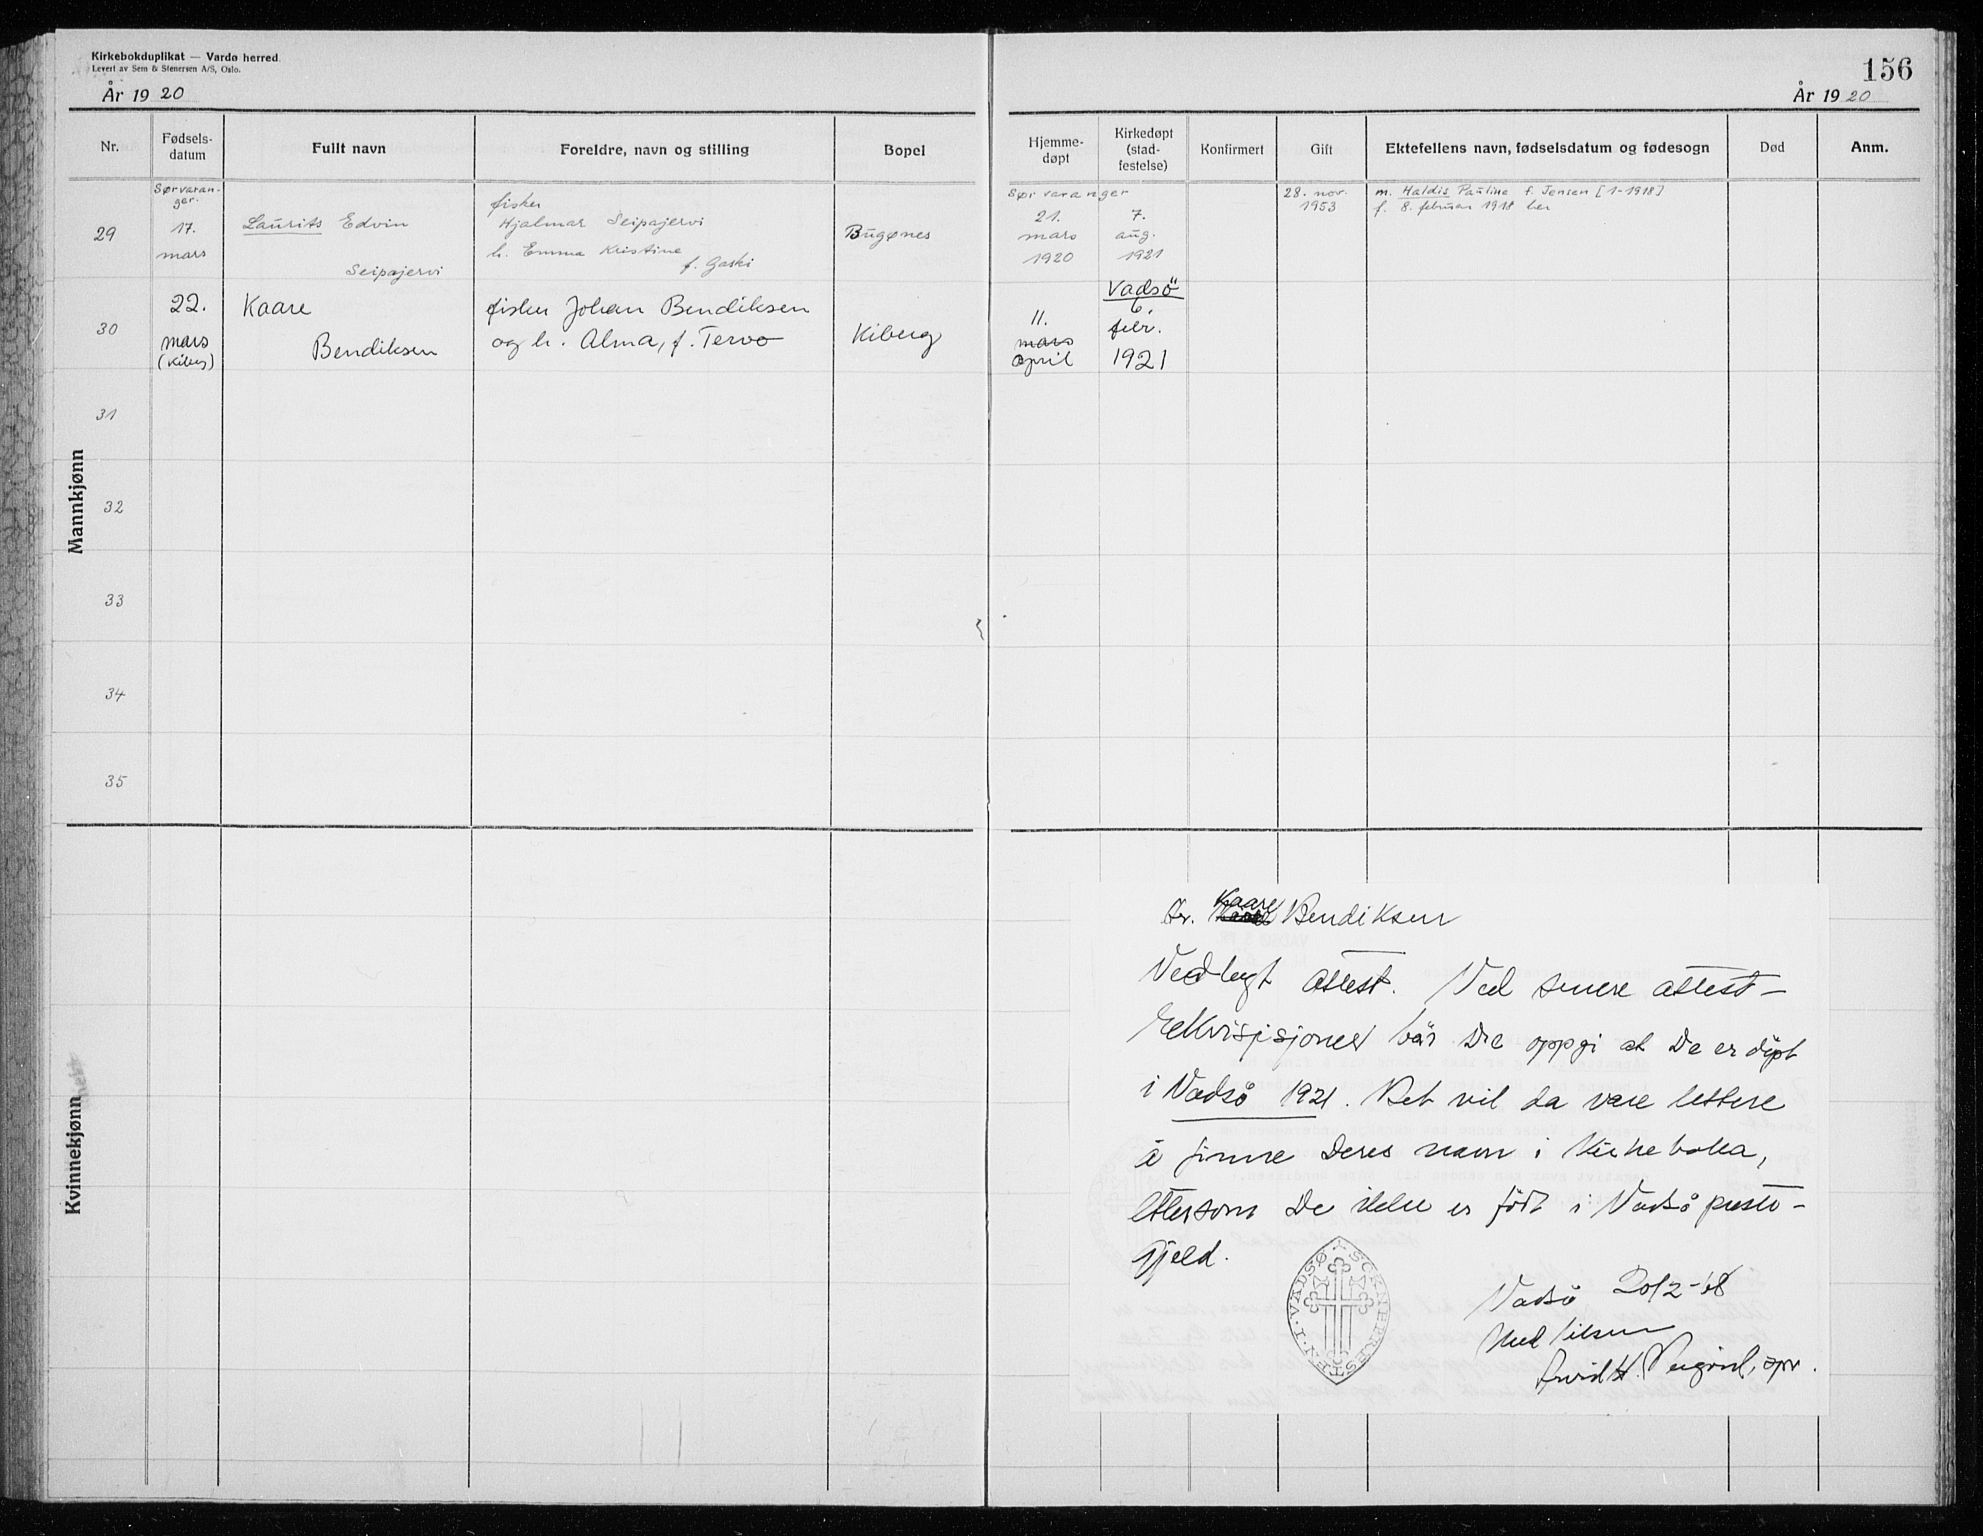 Kirkebokduplikat — Vardø herred.
Levert av Sem & Stenersen A/S, Oslo.
År 19 20
Nr.
Fødsels-
datum
Fullt navn
Foreldre, navn og stilling
Bopel
Sørvaran-
ger.
29
17.
mars
Laurits Edvin
Seipajervi
fisker
Hjalmar Seipajervi
h. Emma Kristine
f. Gaski
Bugønes
30
22.
mars
(Kiberg)
Kaare
Bendiksen
fisker Johan Bendiksen
og h. Alma, f. Tervo
Kiberg
31
32
33
34
35
Mannkjønn
Kvinnekjønn
156
År 19 20
Hjemme-
døpt
Kirkedøpt
(stad-
festelse)
Konfirmert
Gift
Ektefellens navn, fødselsdatum og fødesogn
Død
Anm.
Sørvaranger
21.
mars
1920
7.
aug.
1921
28. nov.
1953
m. Haldis Pauline f. Jensen [1-1918]
f. 8. februar 1918 her
11.
mars
april
Vadsö
6.
febr.
1921
Kaare
Hr. Bendiksen
Vedlagt attest. Ved senere attest-
rekvisisjoner bör De oppgi at De er döpt
i Vadsö 1921. Det vil da være lettere
å finne Deres navn i kirkeboka,
ettersom De ikke er födt i Vadsö preste-
gjeld.
Vadsö 20/2-68
Med hilsen
Arvid H. spr.